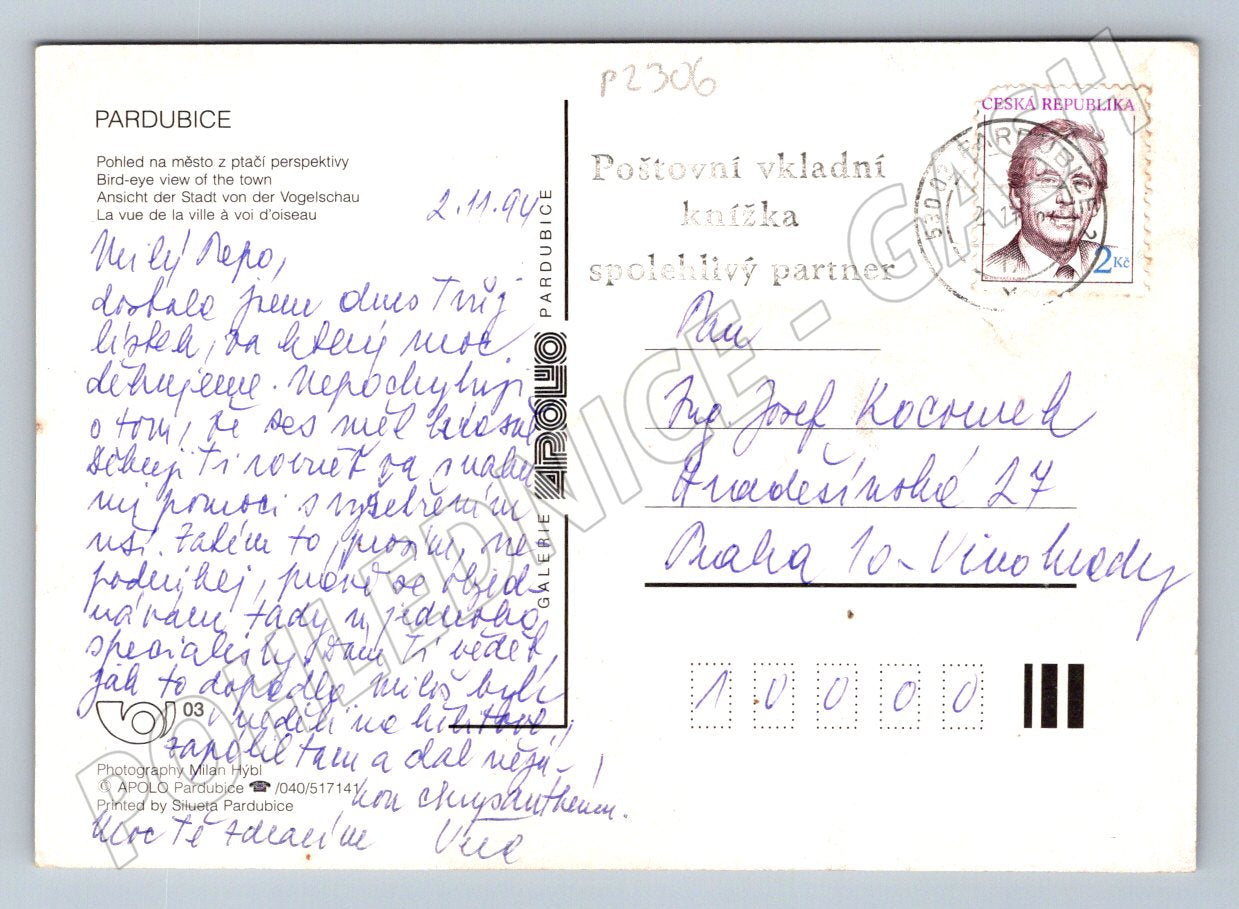 p2306
PARDUBICE
Pohled na město z ptačí perspektivy
Bird-eye view of the town
Ansicht der Stadt von der Vogelschau
La vue de la ville à voi d'oiseau
2.11.94
Milý Pepo,
dostala jsem dnes Tvůj
lístek, za který moc
děkujeme. Nepochybuji
o tom, že ses měl krásně
Děkuji Ti rovněž za snahu
mi pomoci s vyšetřením
uší. Zatím to, prosím, ne
podnikej, právě se objed-
návám tady u jednoho
specialisty, Dám Ti vědět,
jak to dopadlo. Miloš byl
v neděli na hřbitově,
zapálil tam a dal něja-
kou chrysanthemu.
Moc Tě zdravím
03
Photography Milan Hýbl
© APOLO Pardubice ☎ /040/517141
Printed by Silueta Pardubice
GALERIE APOLO PARDUBICE
Poštovní vkladní
knížka
spolehlivý partner
530 02 PARDUBICE 2
ČESKÁ REPUBLIKA
2 Kč
Pan
Ing Josef Kocourek
Hradešínská 27
Praha 10 - Vinohrady
1 0 0 0 0
POHLEDNICE - GASH